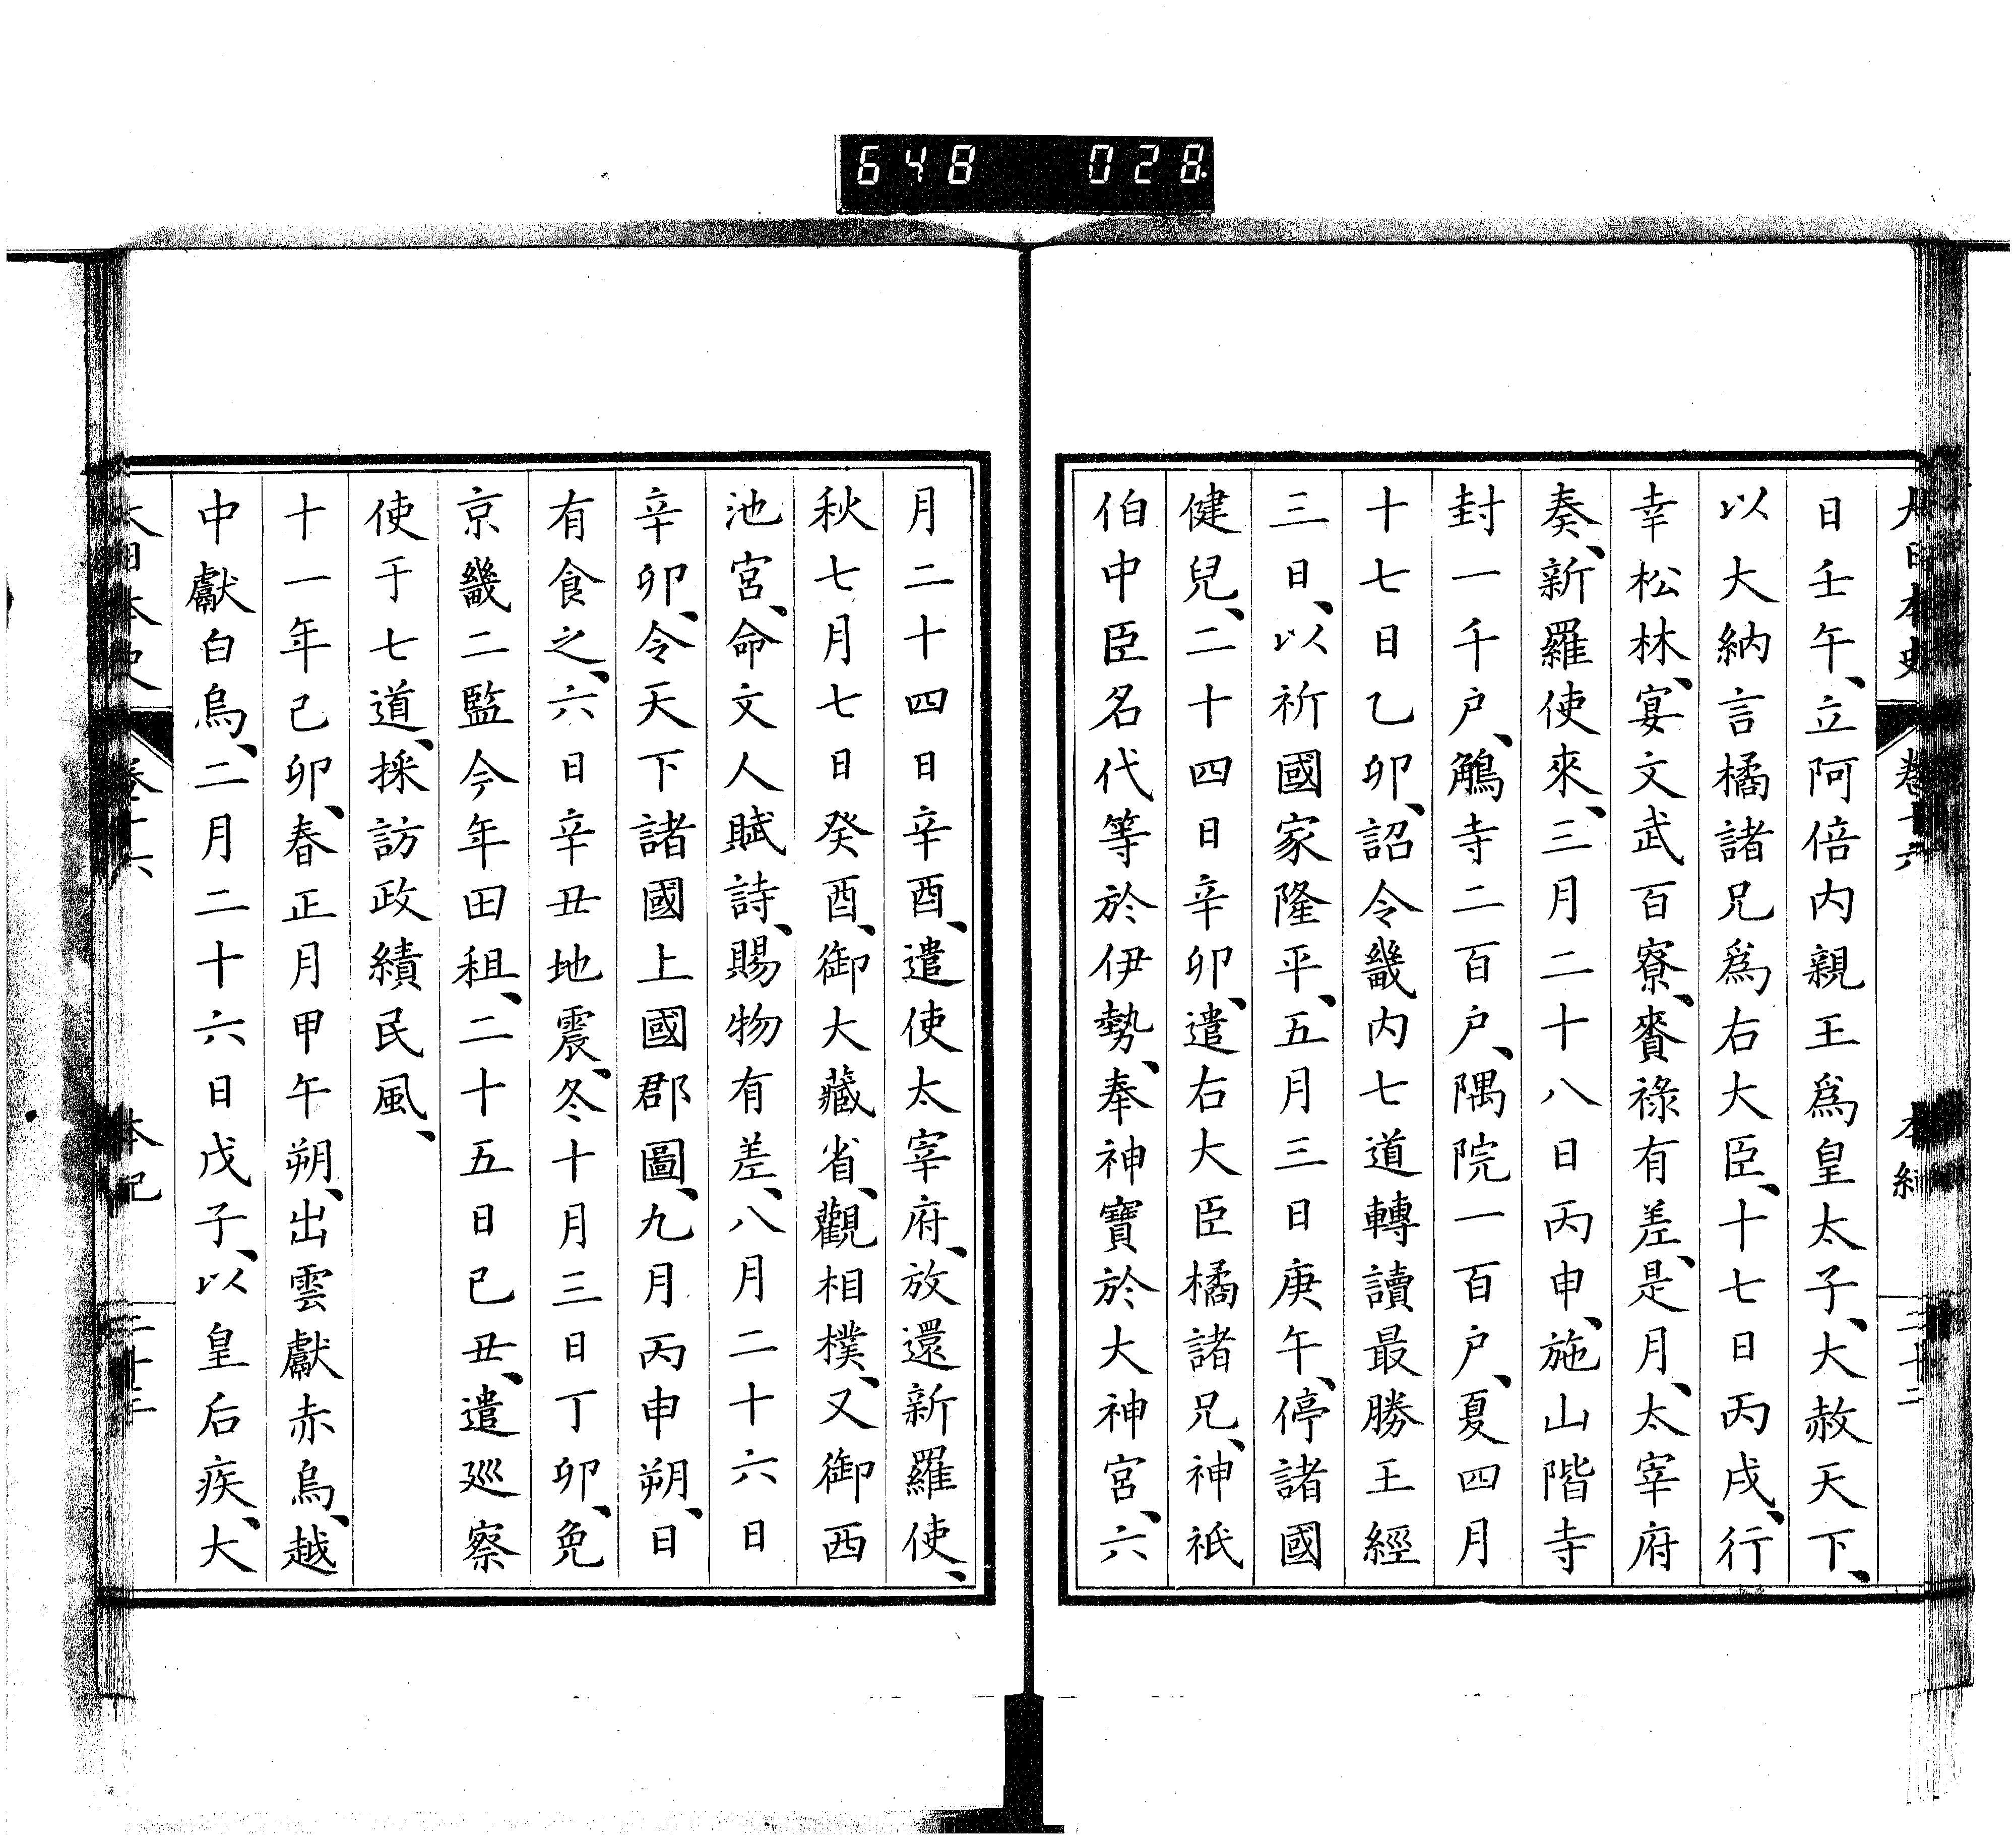 648 028
大日本史 卷十六 本紀 三十二
日壬午、立阿倍内親王爲皇太子、大赦天下、
以大納言橘諸兄爲右大臣、十七日丙戌、行
幸松林、宴文武百寮、賚祿有差、是月、太宰府
奏、新羅使來、三月二十八日丙申、施山階寺
封一千戸、鵤寺二百戸、隅院一百戸、夏四月
十七日乙卯、詔令畿内七道轉讀最勝王經
三日、以祈國家隆平、五月三日庚午、停諸國
健兒、二十四日辛卯、遣右大臣橘諸兄、神祇
伯中臣名代等於伊勢、奉神寶於大神宮、六
月二十四日辛酉、遣使太宰府、放還新羅使、
秋七月七日癸酉、御大藏省、觀相撲、又御西
池宮、命文人賦詩、賜物有差、八月二十六日
辛卯、令天下諸國上國郡圖、九月丙申朔、日
有食之、六日辛丑地震、冬十月三日丁卯、免
京畿二監今年田租、二十五日已丑、遣廵察
使于七道、採訪政績民風、
十一年己卯、春正月甲午朔、出雲獻赤烏、越
中獻白烏、二月二十六日戊子、以皇后疾、大
大日本史 卷十六 本紀 三十三